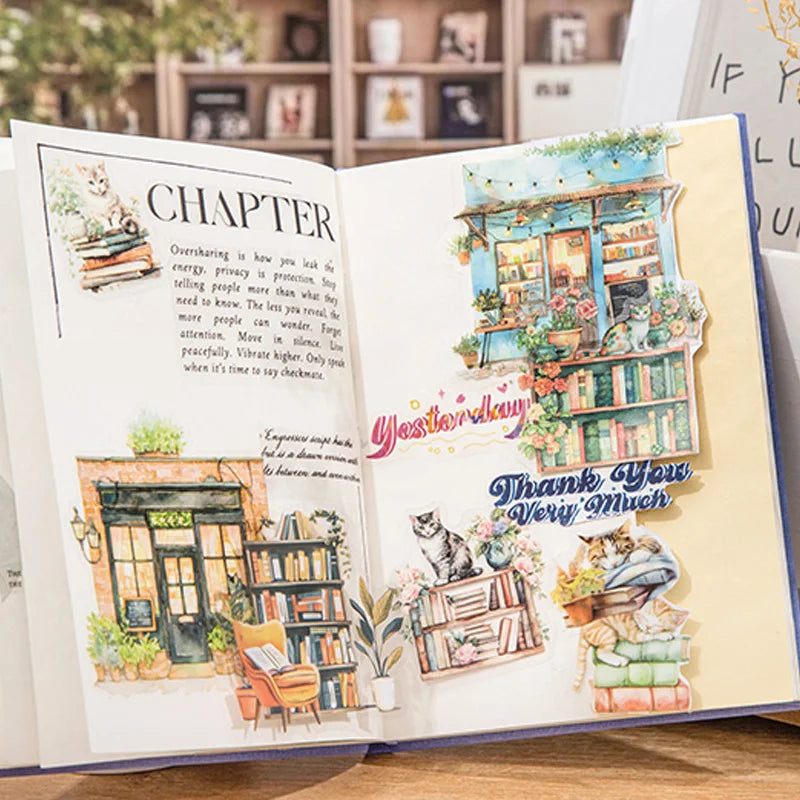 CHAPTER
Oversharing is how you leak the
energy, privacy is protection. Stop
telling people more than what they
need to know. The less you reveal, the
more people can wonder. Forget
attention. Move in silence. Live
peacefully. Vibrate higher. Only speak
when it's time to say checkmate.
Engrossers script has the
but is a drawn version with
between and even within
Yesterday
Thank You
Very Much
IF
THE